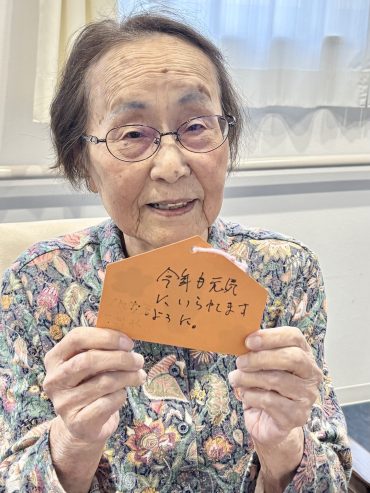 今年も元気
にいられます
ように。